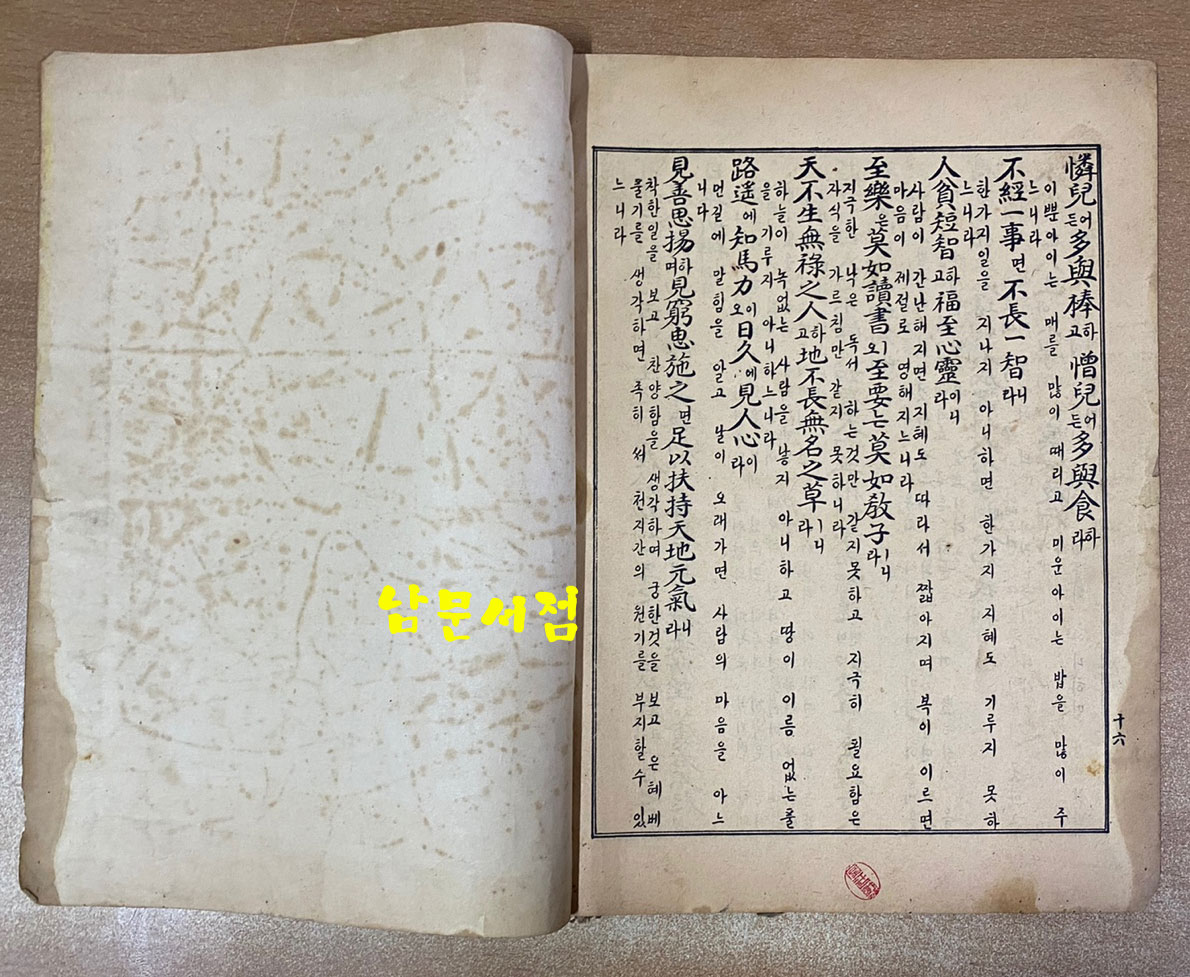 憐兒어든多與棒하고憎兒어든多與食하라
이뿐아이는 매를 많이 때리고 미운아이는 밥을 많이 주
느니라
不經一事면不長一智니라
한가지일을 지나지 아니하면 한가지 지혜도 기루지 못하
느니라
人貧短智하고福至心靈이니라
사람이 간난해지면 지혜도 따라서 짧아지며 복이 이르면
마음이 제절로 영해지느니라
至樂은莫如讀書외至要는莫如敎子ㅣ니라
지극한 낙은 독서 하는것만 같지못하고 지극히 필요함은
자식을 가르침만 같지 못하니라
天不生無祿之人하고地不長無名之草ㅣ니라
하늘이 녹없는 사람을 낳지 아니하고 땅이 이름 없는풀
을 기루지 아니하느니라
路遥에知馬力이오日久에見人心이라
먼길에 말힘을 알고 날이 오래가면 사람의 마음을 아느
니다
見善思揚하며見窮思施之면足以扶持天地元氣니라
착한일을 보고 찬양함을 생각하며 궁한것을 보고 은혜 베
풀기를 생각하면 족히 써 천지간의 원기를 부지할수 있
느니라
十六
남문서점